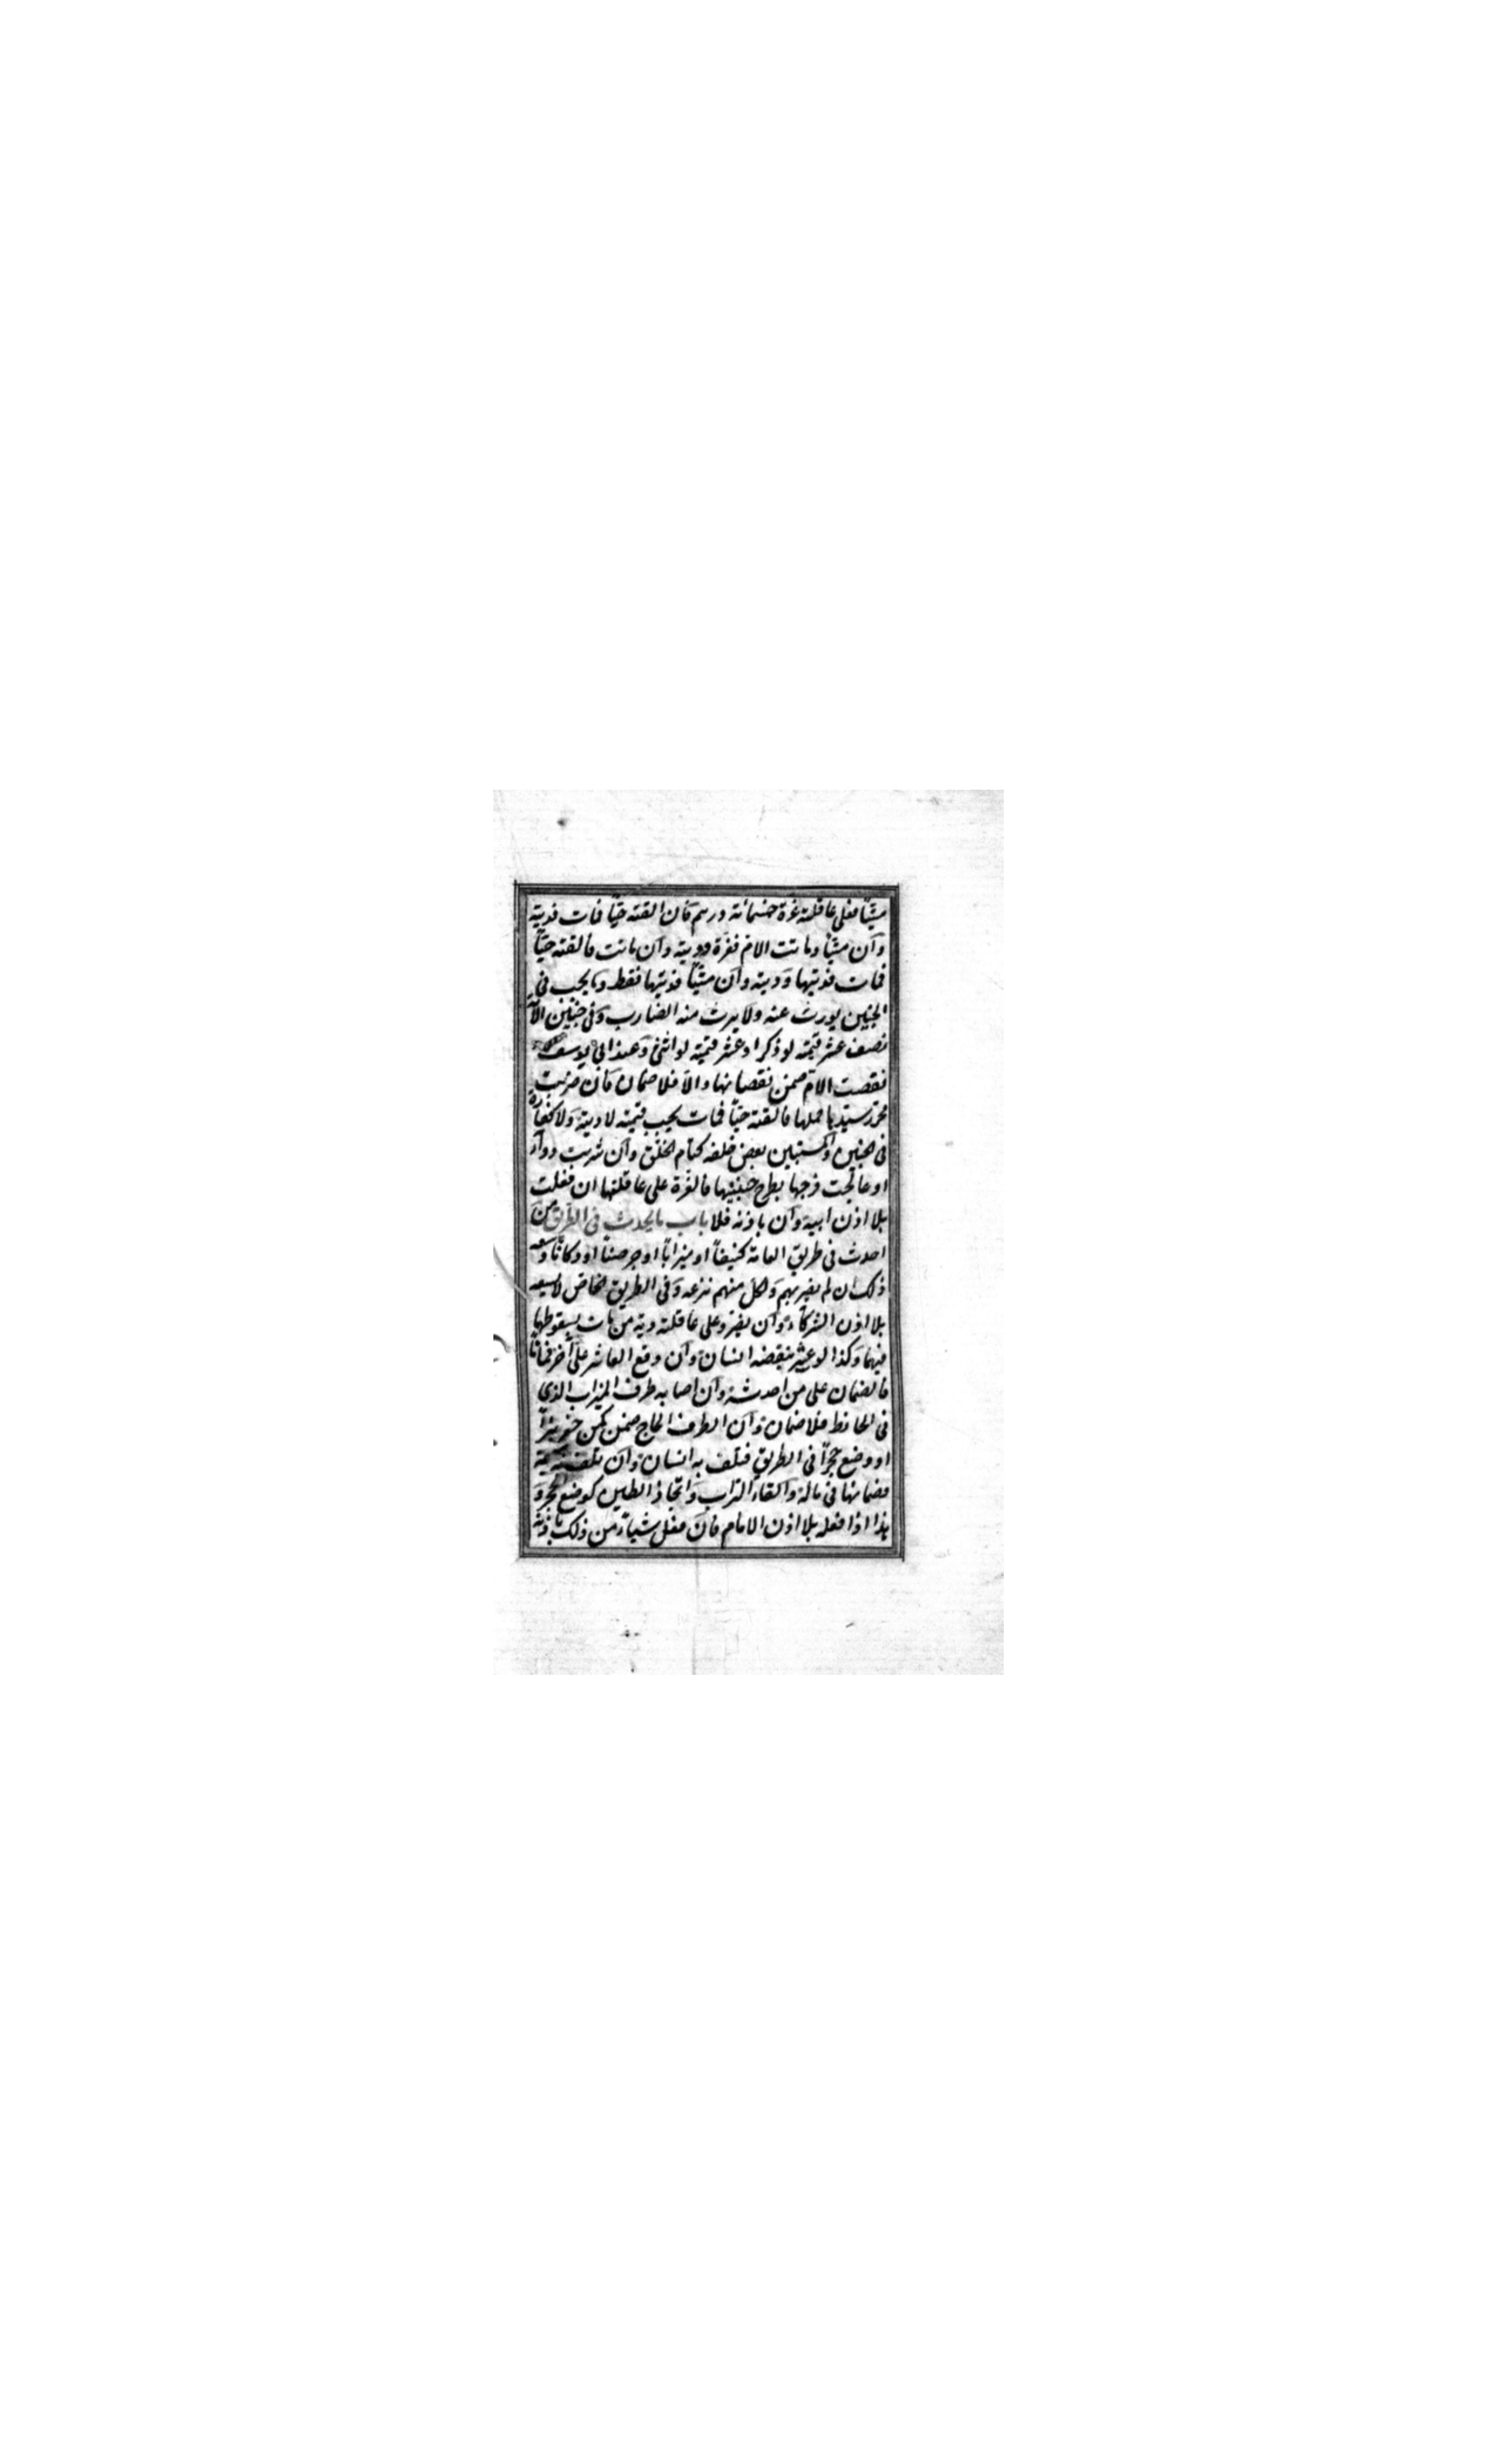 ميتًا فعلى عاقلته غرة خمسمائة درهم فان القته حيًا فمات فدية
وان ميتًا وماتت الام فغرة ودية وان ماتت فالقته حيًا
فمات فديتها وديته وان ميتًا فديتها فقط وما يجب في
الجنين يورث عنه ولا يرث منه الضارب وفي جنين الامة
نصف عشر قيمته لو ذكرا وعشر قيمته لو انثى وعند ابي يوسف
نقصت الام ضمن نقصانها والا فلا ضمان فان ضربت
فحرر سيدها حملها فالقته حيًا فمات يجب قيمته لا ديته ولا كفارة
في الجنين والمستبين بعض خلقه كتام الخلق وان شربت دواء
او عالجت فرجها بطرح جنينها فالغرة على عاقلتها ان فعلت
بلا اذن ابيه وان باذنه فلا باب ما يحدث في الطريق من
احدث في طريق العامة كنيفًا او ميزابًا او جرصنًا او دكانًا وسعه
ذلك ان لم يضر بهم ولكل منهم نزعه وفي الطريق الخاص لا يسعه
بلا اذن الشركاء وان لم يضر وعلى عاقلته دية من مات بسقوطها
فيهما وكذا لو عثر بنقضه انسان وان وقع العاثر على آخر فماتا
فالضمان على من احدثه وان اصابه طرف الميزاب الذي
في الحائط فلا ضمان وان الطرف الخارج ضمن كمن حفر بئرًا
او وضع حجرًا في الطريق فتلف به انسان وان تلف به بهيمة
فضمانها في ماله والقاء التراب واتخاذ الطين كوضع الحجر و
هذا اذا فعله بلا اذن الامام فان فعل شيأ من ذلك باذنه